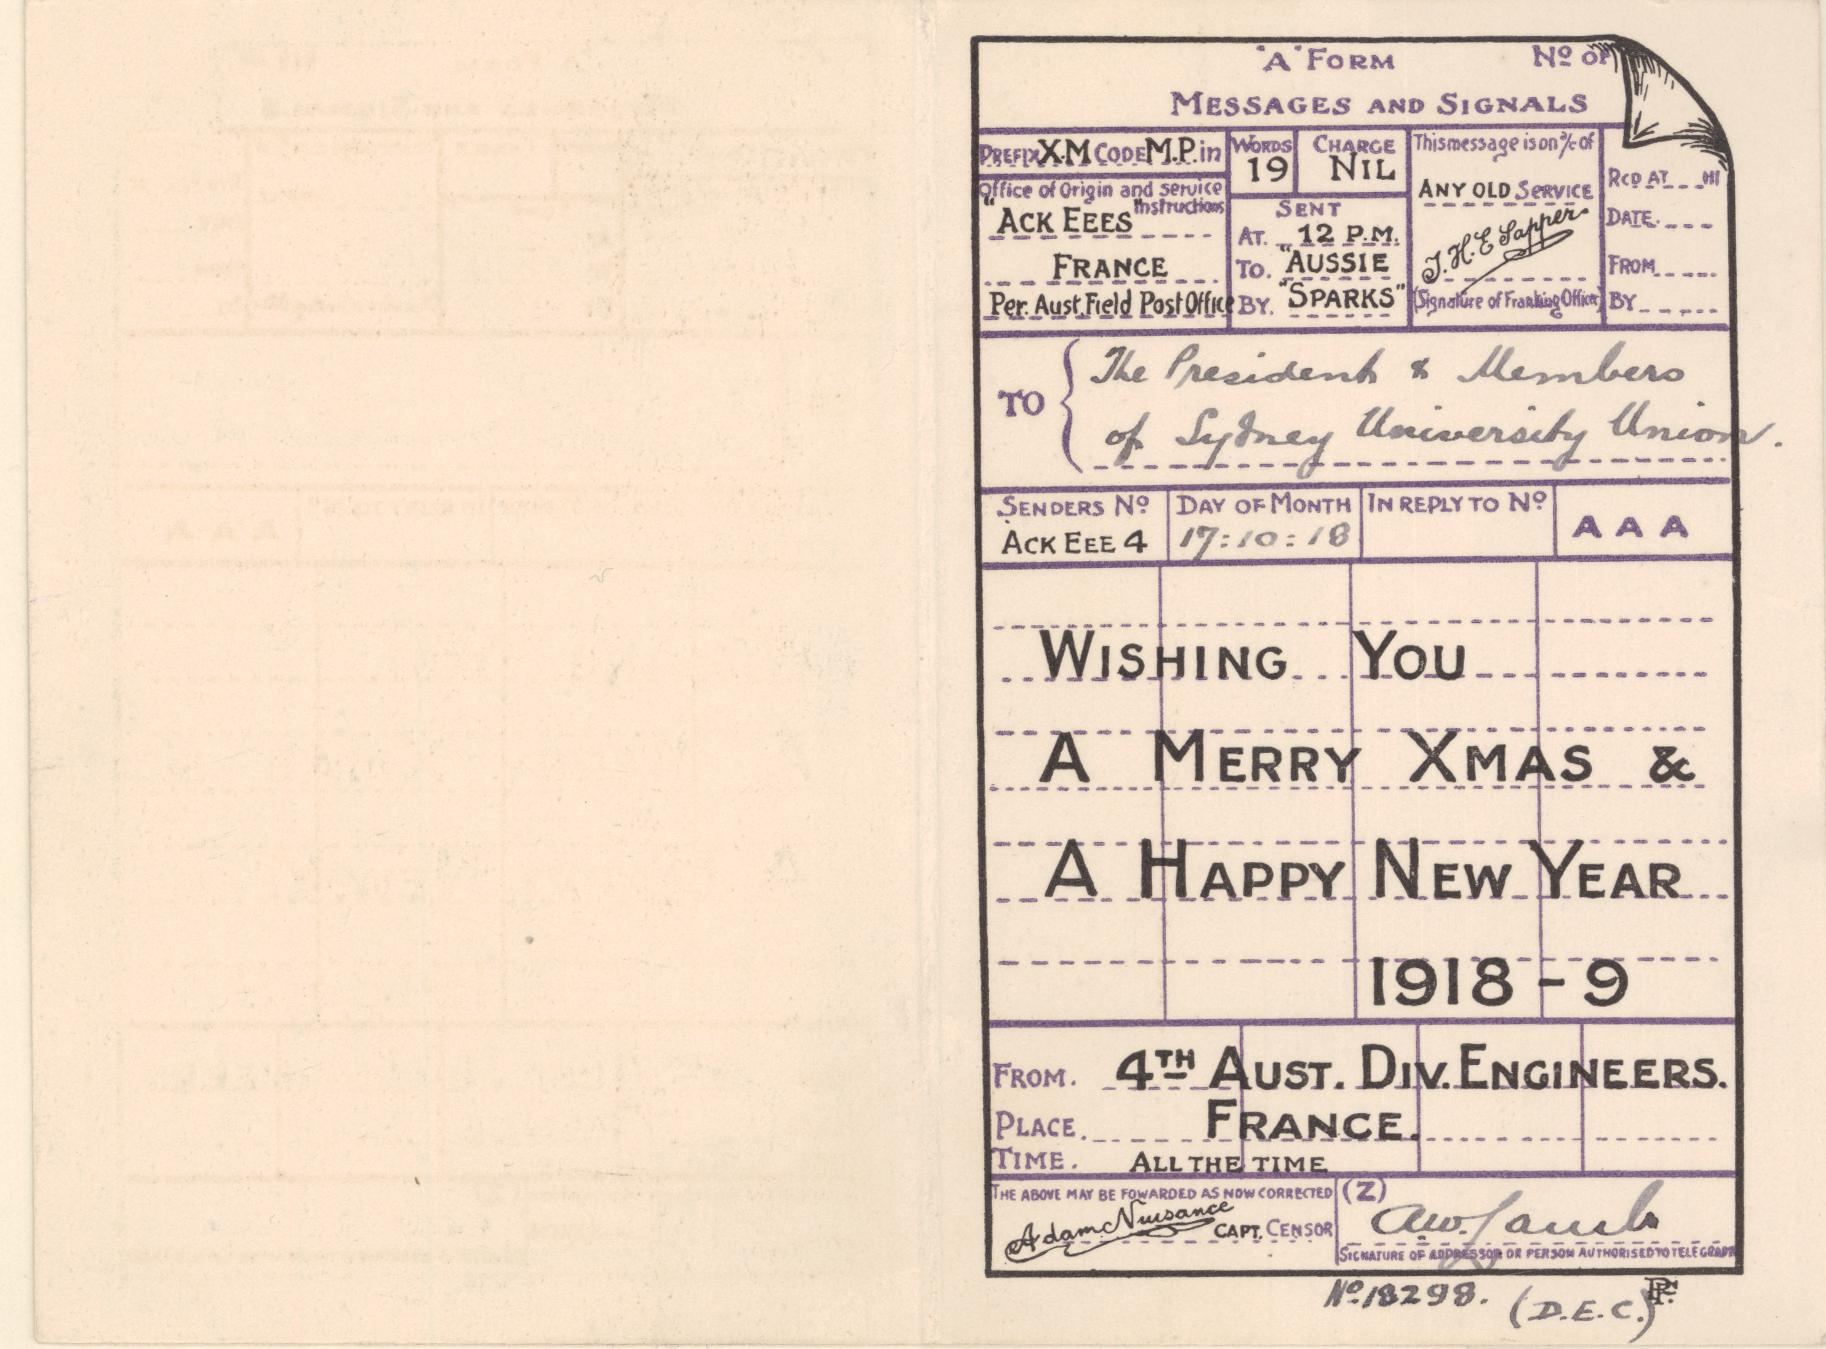 "A" FORM No OF
MESSAGES AND SIGNALS
PREFIX X.M CODE M.P. in
WORDS
19
CHARGE
NIL
This message is on a/c of
ANY OLD SERVICE
J.H.E. Sapper
(Signature of Franking Officer)
RCD AT
DATE.
FROM
BY
Office of Origin and service Instructions
"ACK EEES"
FRANCE
Per. Aust. Field Post Office
SENT
AT. 12 P.M.
TO. "AUSSIE
BY. "SPARKS"
TO The President & Members
of Sydney University Union.
SENDERS No
ACK EEE 4
DAY OF MONTH
17:10:18
IN REPLY TO No
A A A
WISHING YOU
A MERRY XMAS &
A HAPPY NEW YEAR
1918 - 9
FROM. 4TH AUST. DIV. ENGINEERS.
PLACE. FRANCE.
TIME. ALL THE TIME
THE ABOVE MAY BE FOWARDED AS NOW CORRECTED
Adamc Nuisance CAPT. CENSOR
(Z)
SIGNATURE OF ADDRESSOR OR PERSON AUTHORISED TO TELEGRAPH
No. 18298.
(D.E.C.)